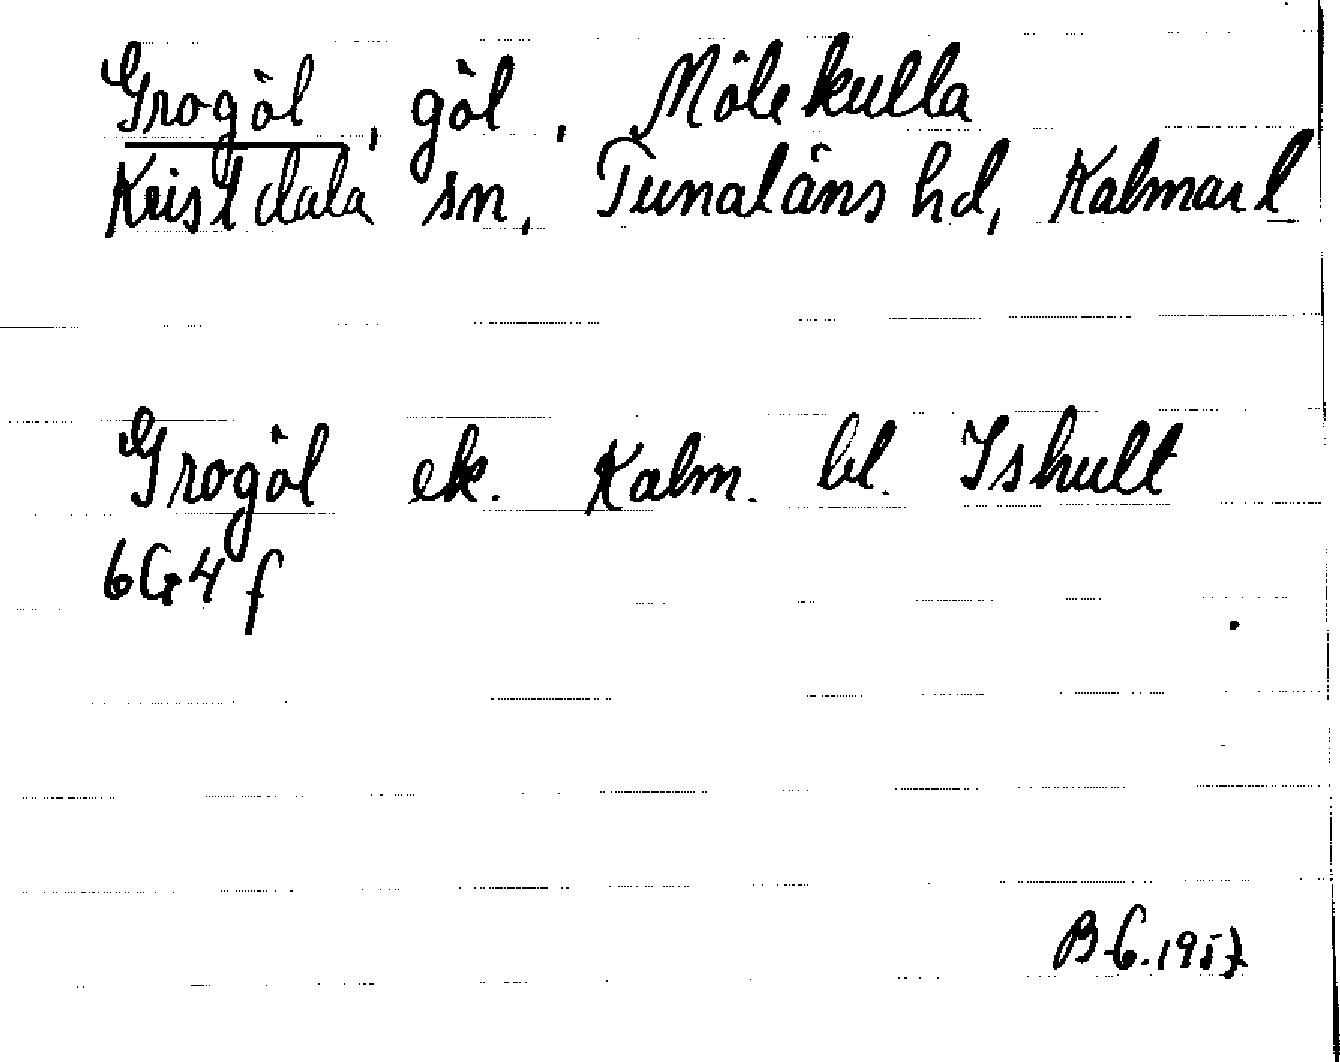 Grogöl, göl, Mölekulla
Kristdala sn, Tunaläns hd, Kalmar l
Grogöl ek. Kalm. bl. Ishult
6G4f
B-G. 1957